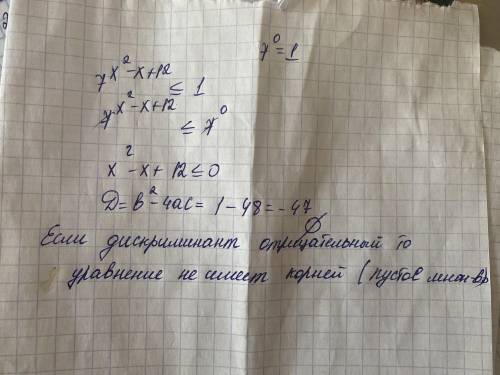 7⁰ = 1
7^(x² - x + 12) ≤ 1
7^(x² - x + 12) ≤ 7⁰
x² - x + 12 ≤ 0
D = b² - 4ac = 1 - 48 = -47
∅
Если дискриминант отрицательный то
уравнение не имеет корней (пустое мнж-во)